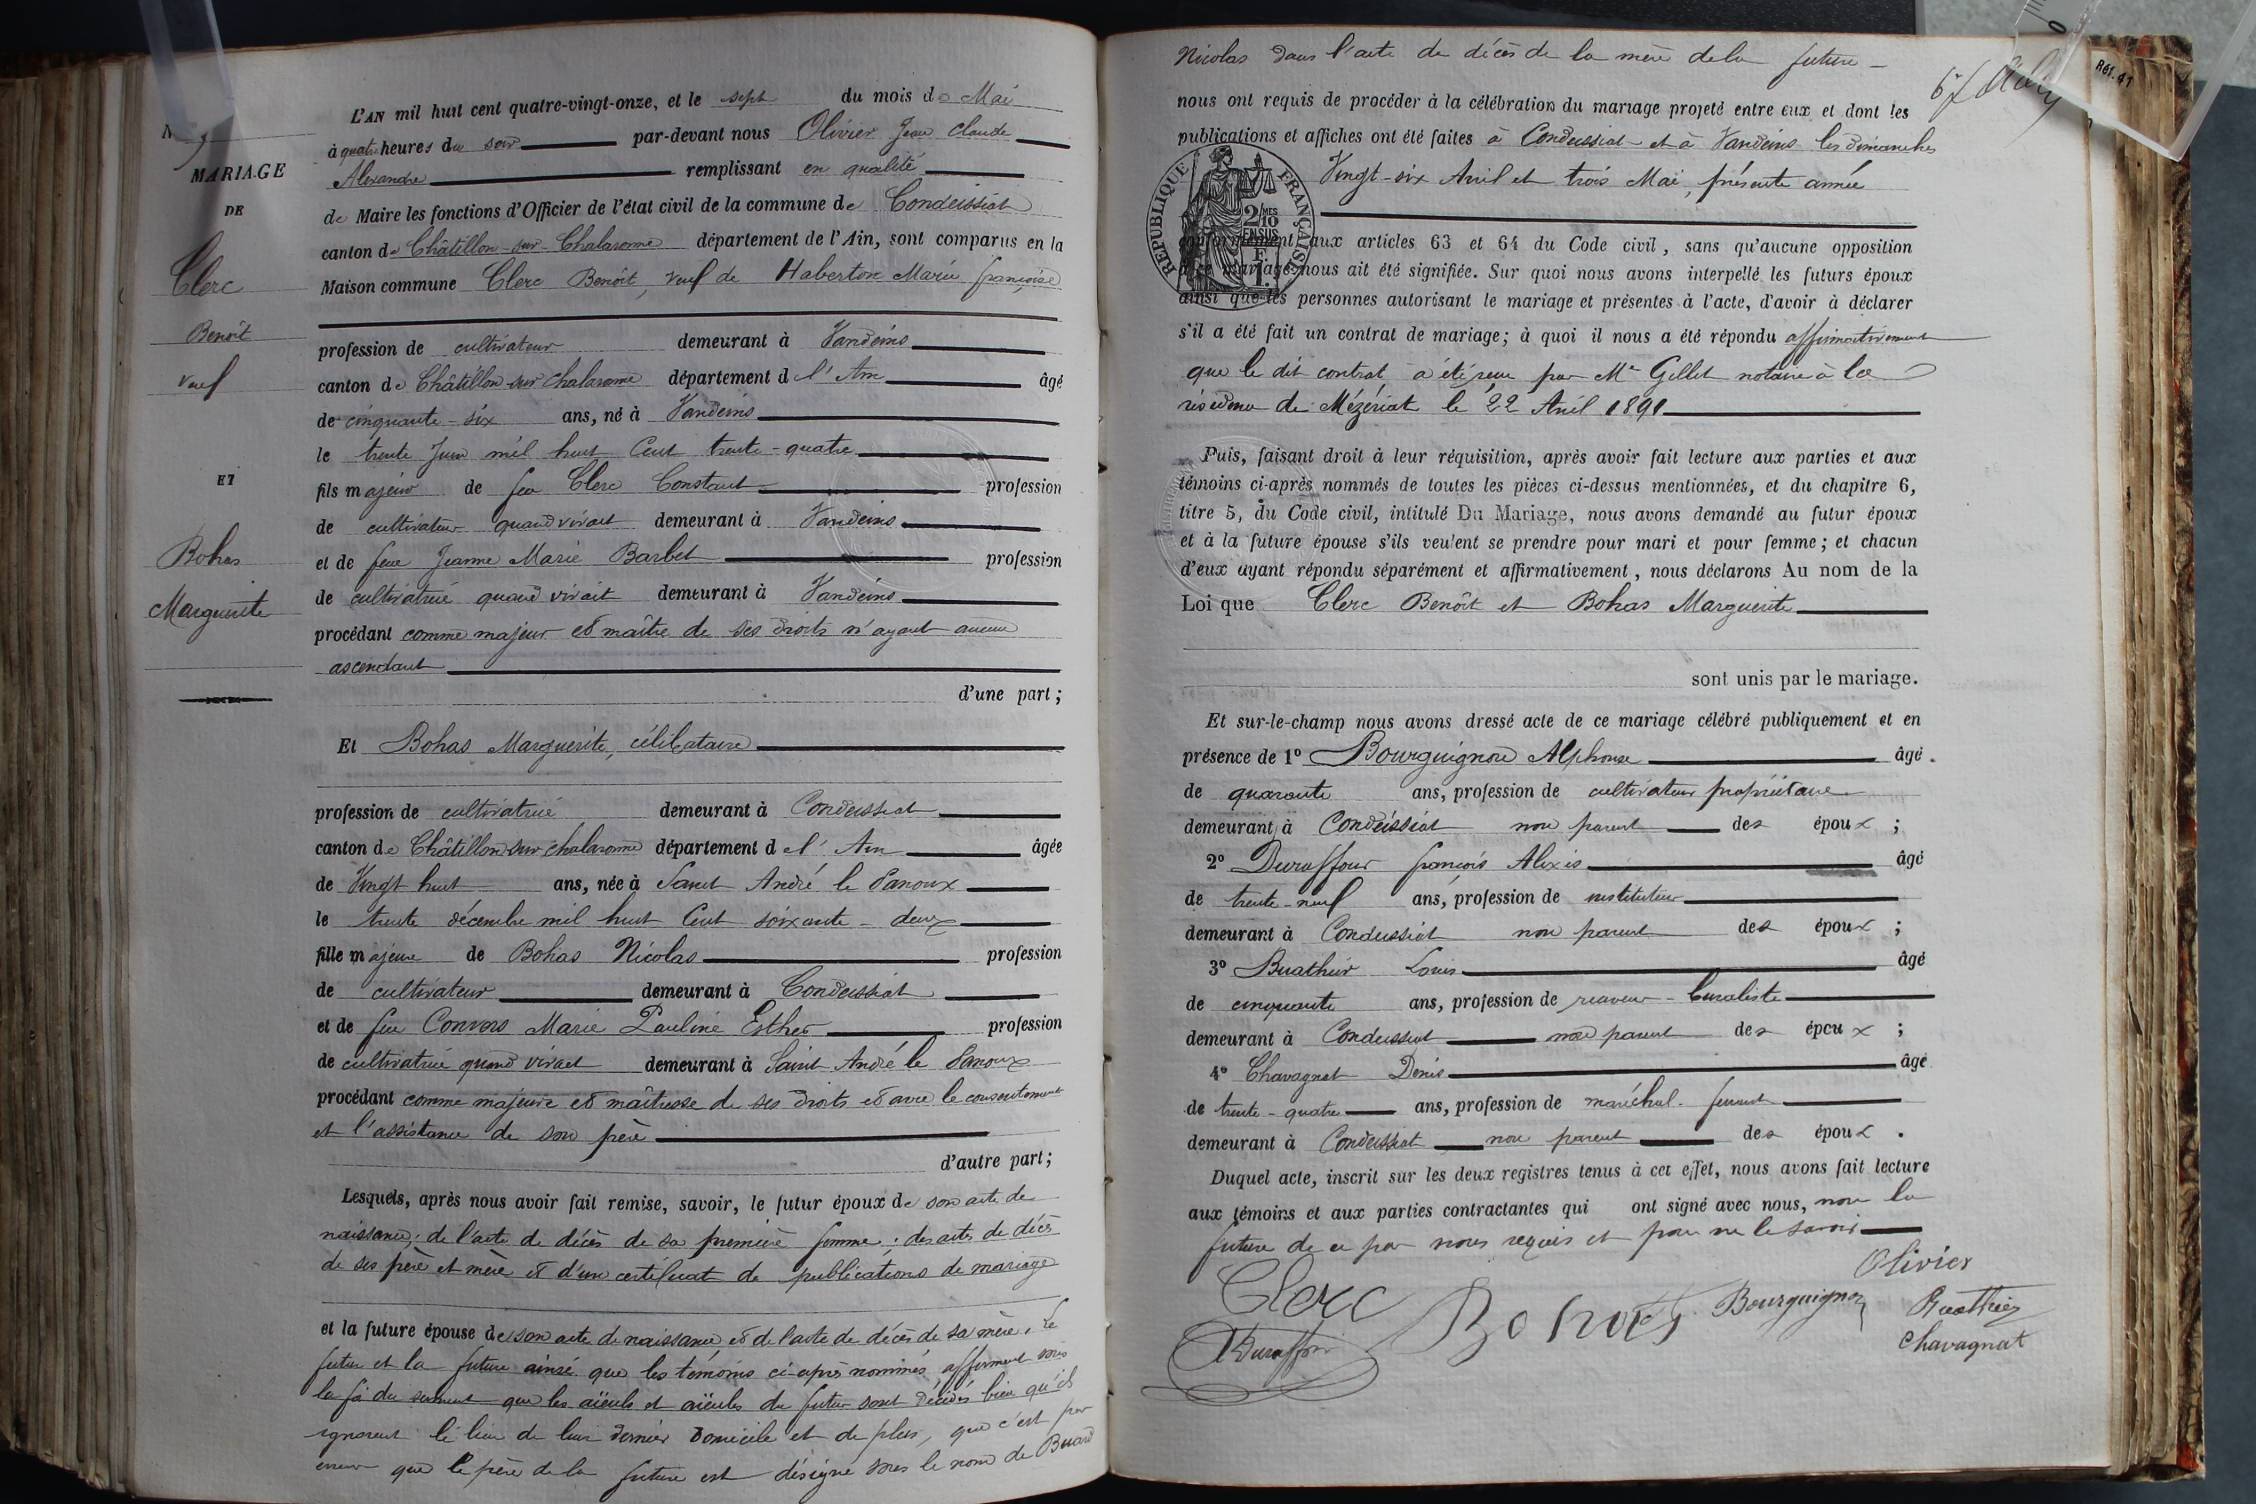 MARIAGE
DE
Clerc
Benoît
veuf
ET
Bohas
Marguerite
L'AN mil huit cent quatre-vingt-onze, et le sept du mois de Mai
à quatre heures du soir par-devant nous Olivier Jean Claude
Alexandre remplissant en qualité
de Maire les fonctions d'Officier de l'état civil de la commune de Condeissiat
canton de Châtillon-sur-Chalaronne département de l'Ain, sont comparus en la
Maison commune Clerc Benoît, veuf de Haberton Marie françoise
profession de cultivateur demeurant à Vandeins
canton de Châtillon sur chalaronne département de l'Ain âgé
de cinquante-six ans, né à Vandeins
le trente Juin mil huit Cent trente-quatre
fils majeur de feu Clerc Constant profession
de cultivateur quand vivait demeurant à Vandeins
et de feue Jeanne Marie Barbet profession
de cultivatrice quand vivait demeurant à Vandeins
procédant comme majeur et maître de ses droits n'ayant aucun
ascendant
d'une part;
Et Bohas Marguerite, célibataire
profession de cultivatrice demeurant à Condeissiat
canton de Châtillon sur chalaronne département de l'Ain âgée
de Vingt huit ans, née à Saint André le Panoux
le trente décembre mil huit Cent soixante-deux
fille majeure de Bohas Nicolas profession
de cultivateur demeurant à Condeissiat
et de feue Convers Marie Pauline Esther profession
de cultivatrice quand vivait demeurant à Saint André le Panoux
procédant comme majeure et maîtresse de ses droits et avec le consentement
et l'assistance de son père
d'autre part;
Lesquels, après nous avoir fait remise, savoir, le futur époux de son acte de
naissance; de l'acte de décès de sa première femme; des actes de décès
de ses père et mère et d'un certificat de publications de mariage
et la future épouse de son acte de naissance et de l'acte de décès de sa mère. Le
futur et la future ainsi que les témoins ci-après nommés, affirment sous
la foi du serment que les aïeuls et aïeules du futur sont décédés bien qu'ils
ignorent le lieu de leur dernier domicile et de plus, que c'est par
erreur que le père de la future est désigné sous le nom de Buard
Nicolas dans l'acte de décès de la mère de la future
Réf. 41
nous ont requis de procéder à la célébration du mariage projeté entre eux et dont les
publications et affiches ont été faites à Condeissiat et à Vandeins les dimanches
Vingt-six Avril et trois Mai, présente année
REPUBLIQUE FRANÇAISE
2/10MES
EN SUS
1F.
conformément aux articles 63 et 64 du Code civil, sans qu'aucune opposition
à ce mariage nous ait été signifiée. Sur quoi nous avons interpellé les futurs époux
ainsi que les personnes autorisant le mariage et présentes à l'acte, d'avoir à déclarer
s'il a été fait un contrat de mariage; à quoi il nous a été répondu affirmativement
que le dit contrat a été reçu par Me Gillet notaire à la
résidence de Mézériat le 22 Avril 1891
Puis, faisant droit à leur réquisition, après avoir fait lecture aux parties et aux
témoins ci-après nommés de toutes les pièces ci-dessus mentionnées, et du chapitre 6,
titre 5, du Code civil, intitulé Du Mariage, nous avons demandé au futur époux
et à la future épouse s'ils veulent se prendre pour mari et pour femme; et chacun
d'eux ayant répondu séparément et affirmativement, nous déclarons Au nom de la
Loi que Clerc Benoît et Bohas Marguerite
sont unis par le mariage.
Et sur-le-champ nous avons dressé acte de ce mariage célébré publiquement et en
présence de 1º Bourguignon Alphonse âgé
de quarante ans, profession de cultivateur propriétaire
demeurant à Condeissiat non parent des époux;
2º Duraffour françois Alexis âgé
de trente-neuf ans, profession de instituteur
demeurant à Condeissiat non parent des époux;
3º Buathier Louis âgé
de cinquante ans, profession de receveur-buraliste
demeurant à Condeissiat non parent des époux;
4º Chavagnat Denis âgé
de trente-quatre ans, profession de maréchal-ferrant
demeurant à Condeissiat non parent des époux.
Duquel acte, inscrit sur les deux registres tenus à cet effet, nous avons fait lecture
aux témoins et aux parties contractantes qui ont signé avec nous, non la
future de ce par nous requis et pour ne le savoir
Olivier
Clerc Bohas Bourguignon Buathier
Duraffour Chavagnat